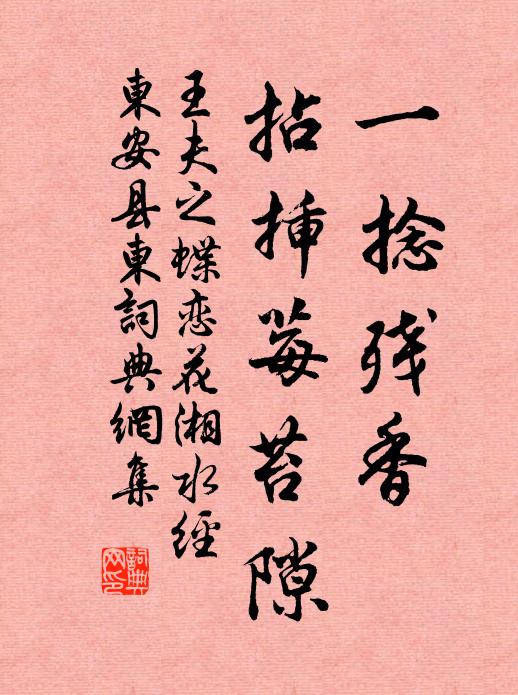 一捻残香
拈插莓苔隙
王夫之蝶恋花湘水经
東安县東詞典網集
詞典网印